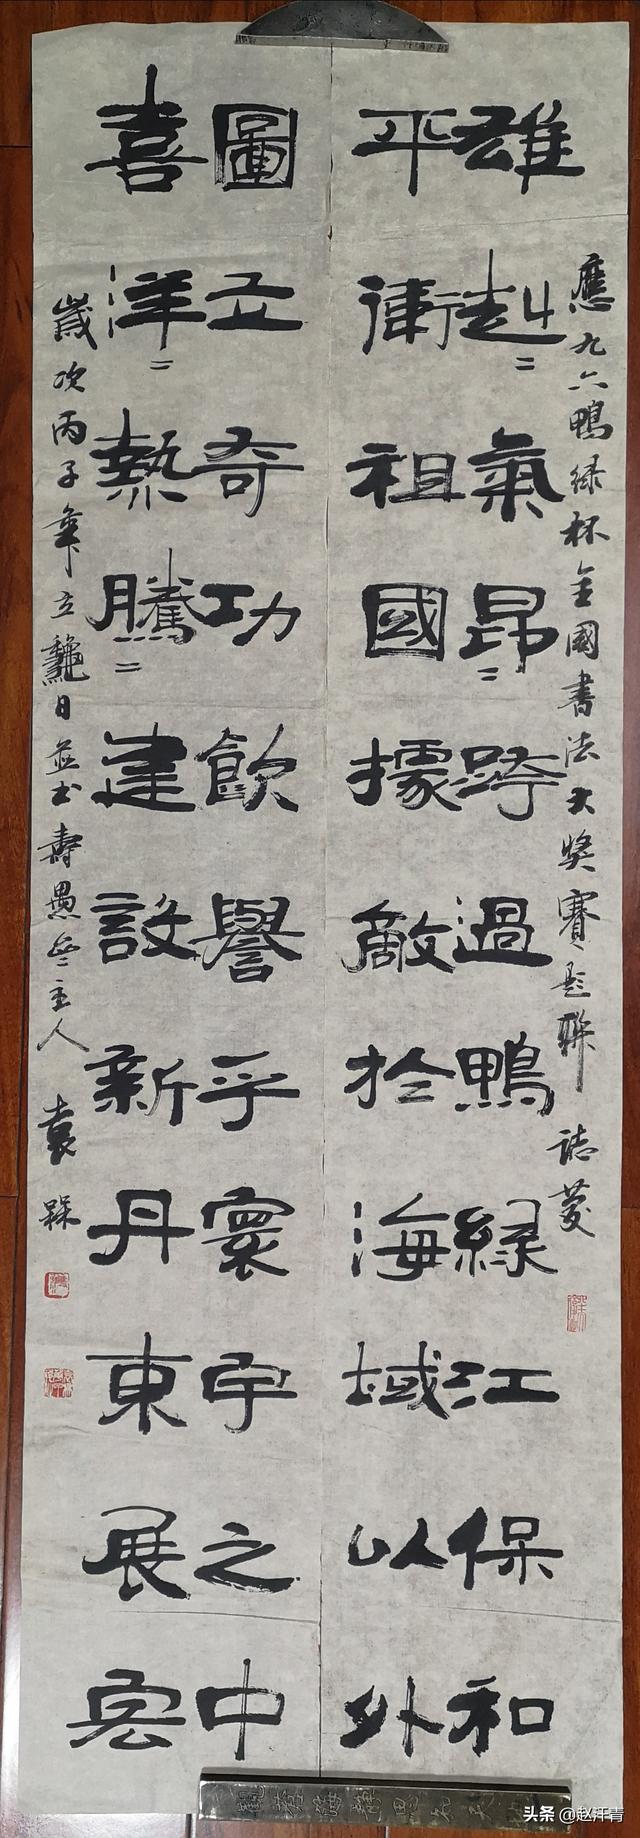 應九六鴨绿杯全國書法大奖賽之題聯
雄赳〓氣昂〓跨過鴨緑江保和
平衛祖國據敵於海域以外
喜洋〓熱騰〓建設新丹東展宏
圖立奇功飲譽乎寰宇之中
歲次丙子年立龝日並书壽愚主人
袁
觀滄海
头条 @赵汗青